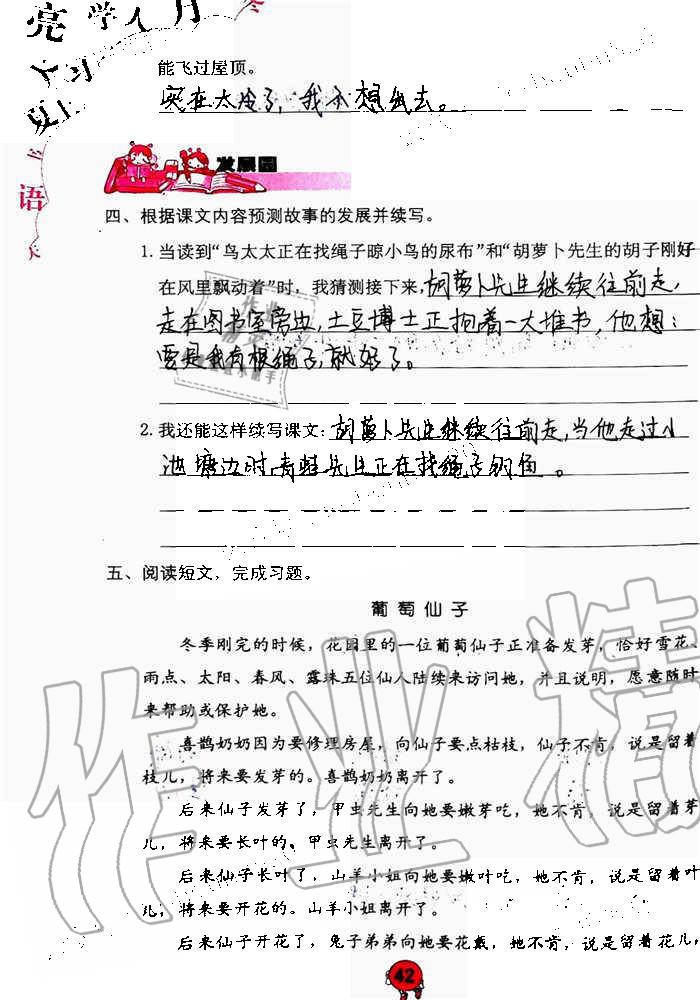 亮 学 人 月
能飞过屋顶。
实在太冷了，我不想出去。
语
发展园
四、根据课文内容预测故事的发展并续写。
1. 当读到“鸟太太正在找绳子晾小鸟的尿布”和“胡萝卜先生的胡子刚好
在风里飘动着”时，我猜测接下来，胡萝卜先生继续往前走，
走在图书室旁边，土豆博士正抱着一大堆书，他想：
要是我有根绳子，就好了。
2. 我还能这样续写课文：胡萝卜先生继续往前走，当他走过小
池塘边时，青蛙先生正在找绳子钓鱼。
五、阅读短文，完成习题。
葡萄仙子
冬季刚完的时候，花园里的一位葡萄仙子正准备发芽，恰好雪花、
雨点、太阳、春风、露珠五位仙人陆续来访问她，并且说明，愿意随时
来帮助或保护她。
喜鹊奶奶因为要修理房屋，向仙子要点枯枝，仙子不肯，说是留着
枝儿，将来要发芽的。喜鹊奶奶离开了。
后来仙子发芽了，甲虫先生向她要嫩芽吃，她不肯，说是留着芽
儿，将来要长叶的。甲虫先生离开了。
后来仙子长叶了，山羊小姐向她要嫩叶吃，她不肯，说是留着叶
儿，将来要开花的。山羊小姐离开了。
后来仙子开花了，兔子弟弟向她要花戴，她不肯，说是留着花，
42
作业精